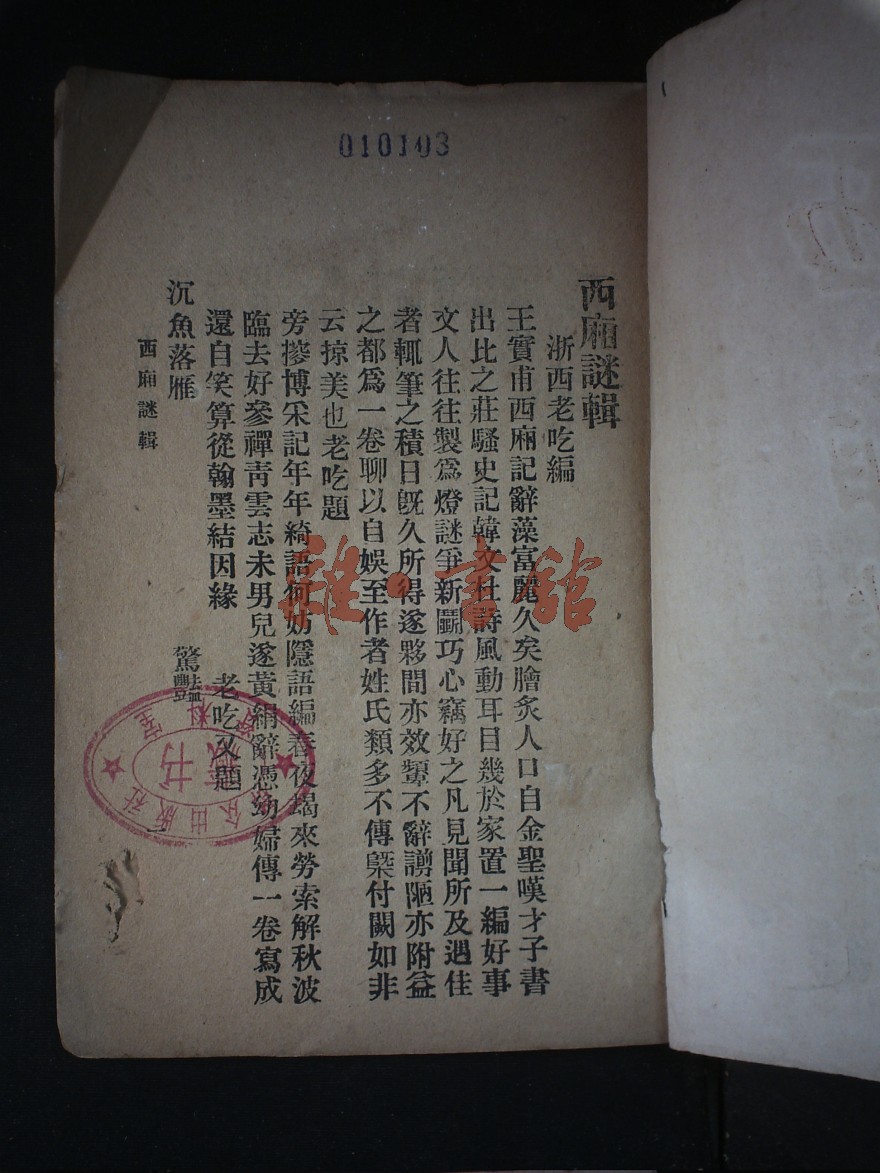 010103
西廂謎輯
浙西老吃編
王實甫西廂記辭藻富麗久矣膾炙人口自金聖嘆才子書
出比之莊騷史記韓文杜詩風動耳目幾於家置一編好事
文人往往製爲燈謎爭新鬭巧心竊好之凡見聞所及遇佳
者輒筆之積日旣久所得遂夥間亦效顰不辭譾陋亦附益
之都爲一卷聊以自娛至作者姓氏類多不傳槩付闕如非
云掠美也老吃題
旁搜博采記年年綺語何妨隱語編春夜朅來勞索解秋波
臨去好參禪靑雲志未男兒遂黃絹辭憑幼婦傳一卷寫成
還自笑算從翰墨結因緣 老吃又題
沉魚落雁 驚豔
西廂謎輯 一
雜·書館
出版社
书